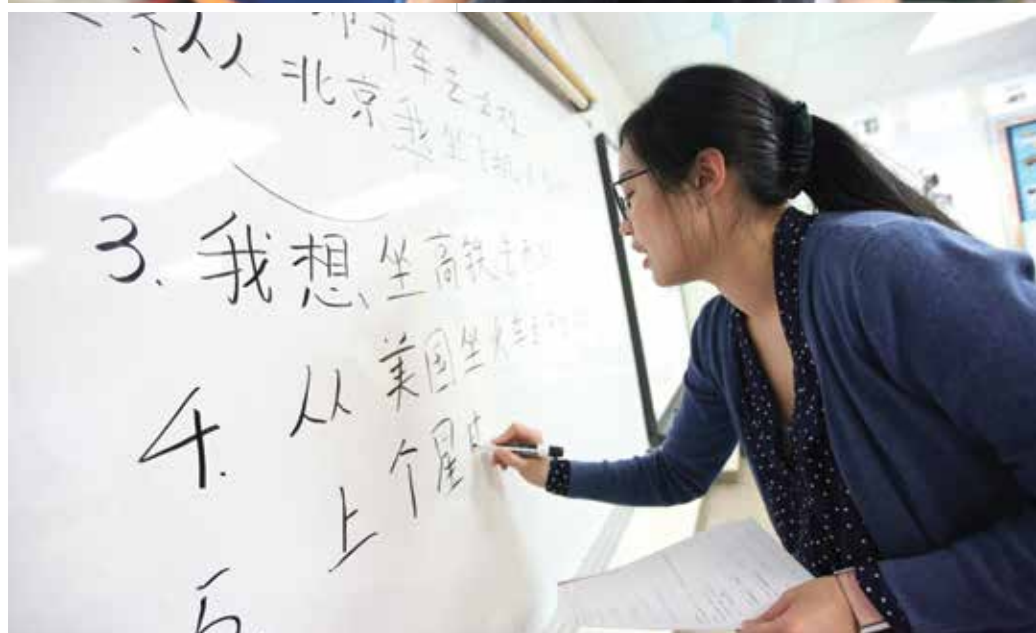 开车去
从北京我坐飞机
3. 我想坐高铁去
4. 从美国坐火车去
5 上个星